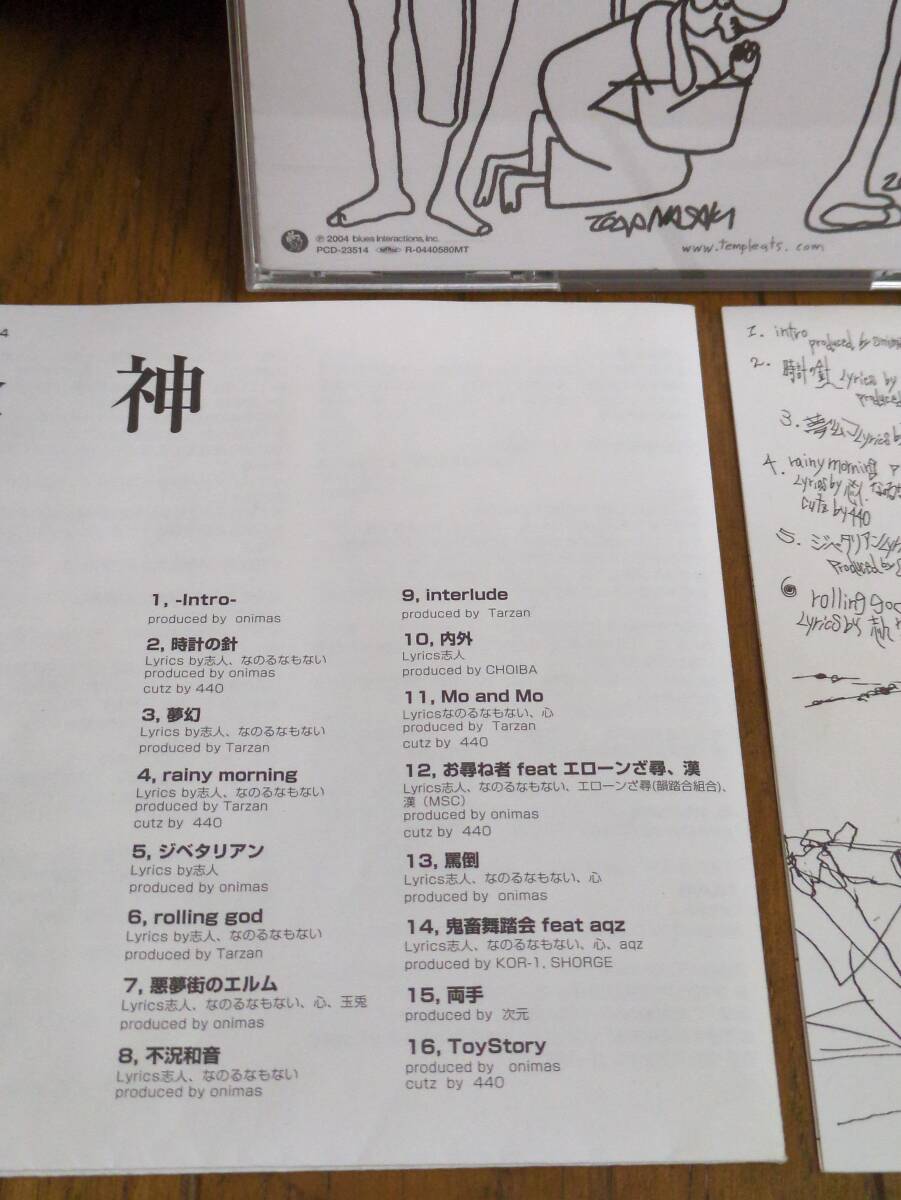 TODA NASAKI
℗ 2004 blues Interactions, Inc.
PCD-23514 R-0440580MT
www.templeats.com
4
神
1, -Intro-
produced by onimas
2, 時計の針
Lyrics by志人、なのるなもない
produced by onimas
cutz by 440
3, 夢幻
Lyrics by志人、なのるなもない
produced by Tarzan
4, rainy morning
Lyrics by志人、なのるなもない
produced by Tarzan
cutz by 440
5, ジベタリアン
Lyrics by志人
produced by onimas
6, rolling god
Lyrics by志人、なのるなもない
produced by Tarzan
7, 悪夢街のエルム
Lyrics志人、なのるなもない、心、玉兎
produced by onimas
8, 不況和音
Lyrics志人、なのるなもない
produced by onimas
9, interlude
produced by Tarzan
10, 内外
Lyrics志人
produced by CHOIBA
11, Mo and Mo
Lyricsなのるなもない、心
produced by Tarzan
cutz by 440
12, お尋ね者 feat エローンざ尋、漢
Lyrics志人、なのるなもない、エローンざ尋(韻踏合組合)、
漢（MSC）
produced by onimas
cutz by 440
13, 罵倒
Lyrics志人、なのるなもない、心
produced by onimas
14, 鬼畜舞踏会 feat aqz
Lyrics志人、なのるなもない、心、aqz
produced by KOR-1. SHORGE
15, 両手
produced by 次元
16, ToyStory
produced by onimas
cutz by 440
1. intro
produced by onima
2. 時計の針 Lyrics by
produced
3. Lyrics b
4. rainy morning P
Lyrics by なのるな
cutz by 440
5. ジベタリアン Lyr
Produced by
6 rolling god
Lyrics by 志人